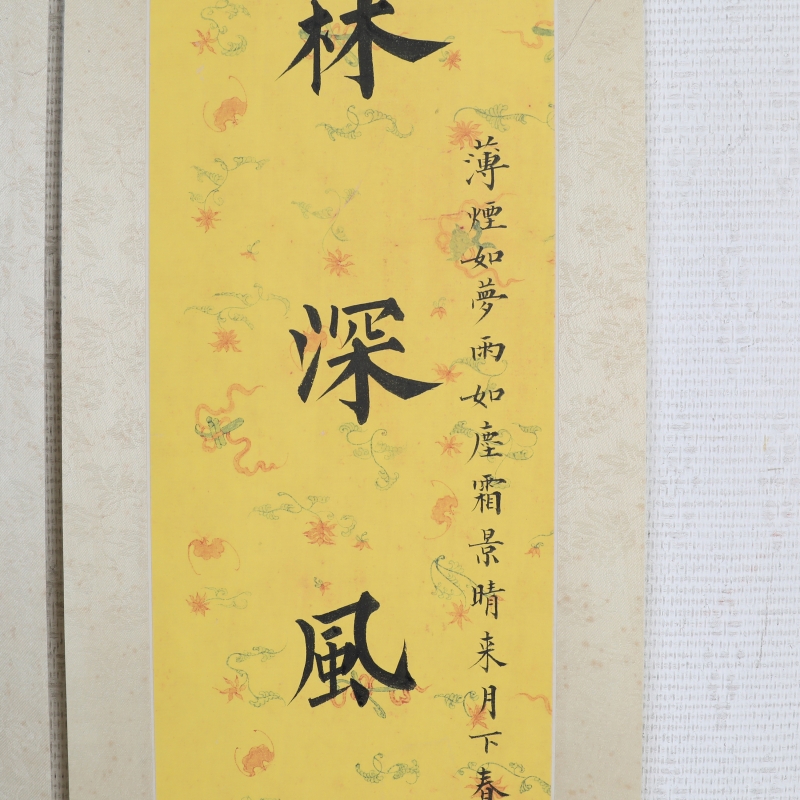 薄煙如夢雨如塵霜景晴来月下春
林深風